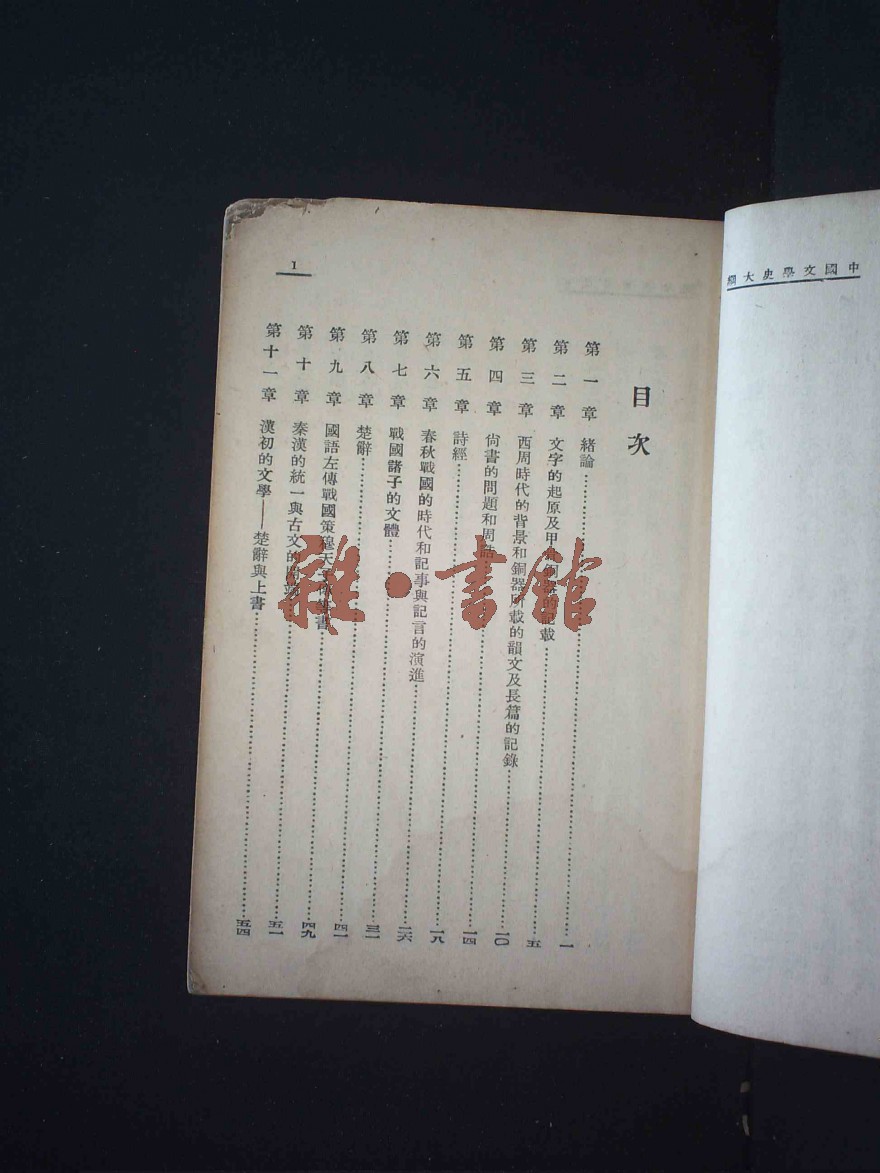 中國文學史大綱
1
目次
第一章 緒論 一
第二章 文字的起原及甲骨銅器的記載 五
第三章 西周時代的背景和銅器所載的韻文及長篇的記錄 一〇
第四章 尙書的問題和周誥 一四
第五章 詩經 一八
第六章 春秋戰國的時代和記事與記言的演進 二六
第七章 戰國諸子的文體 三一
第八章 楚辭 四一
第九章 國語左傳戰國策穆天 書 四九
第十章 秦漢的統一與古文的 五一
第十一章 漢初的文學——楚辭與上書 五四
雜·書館